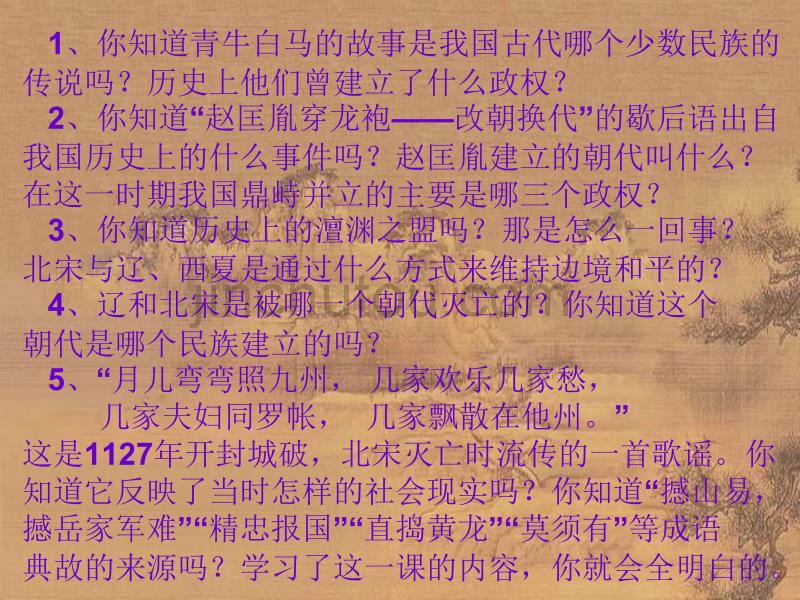 1、你知道青牛白马的故事是我国古代哪个少数民族的
传说吗？历史上他们曾建立了什么政权？
2、你知道“赵匡胤穿龙袍——改朝换代”的歇后语出自
我国历史上的什么事件吗？赵匡胤建立的朝代叫什么？
在这一时期我国鼎峙并立的主要是哪三个政权？
3、你知道历史上的澶渊之盟吗？那是怎么一回事？
北宋与辽、西夏是通过什么方式来维持边境和平的？
4、辽和北宋是被哪一个朝代灭亡的？你知道这个
朝代是哪个民族建立的吗？
5、“月儿弯弯照九州， 几家欢乐几家愁，
几家夫妇同罗帐， 几家飘散在他州。”
这是1127年开封城破，北宋灭亡时流传的一首歌谣。你
知道它反映了当时怎样的社会现实吗？你知道“撼山易，
撼岳家军难”“精忠报国”“直捣黄龙”“莫须有”等成语
典故的来源吗？学习了这一课的内容，你就会全明白的。